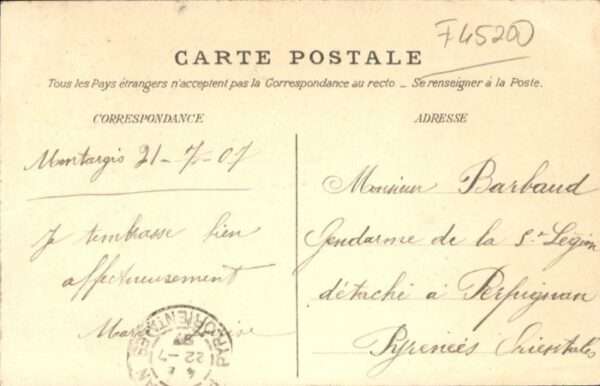 F45200
CARTE POSTALE
Tous les Pays étrangers n'acceptent pas la Correspondance au recto _ Se renseigner à la Poste.
CORRESPONDANCE
ADRESSE
Montargis 21-7-07
Je t'embrasse bien
affectueusement
Monsieur Barbaud
Gendarme de la 5e Légion
détaché à Perpignan
Pyrénées Orientales
22-7